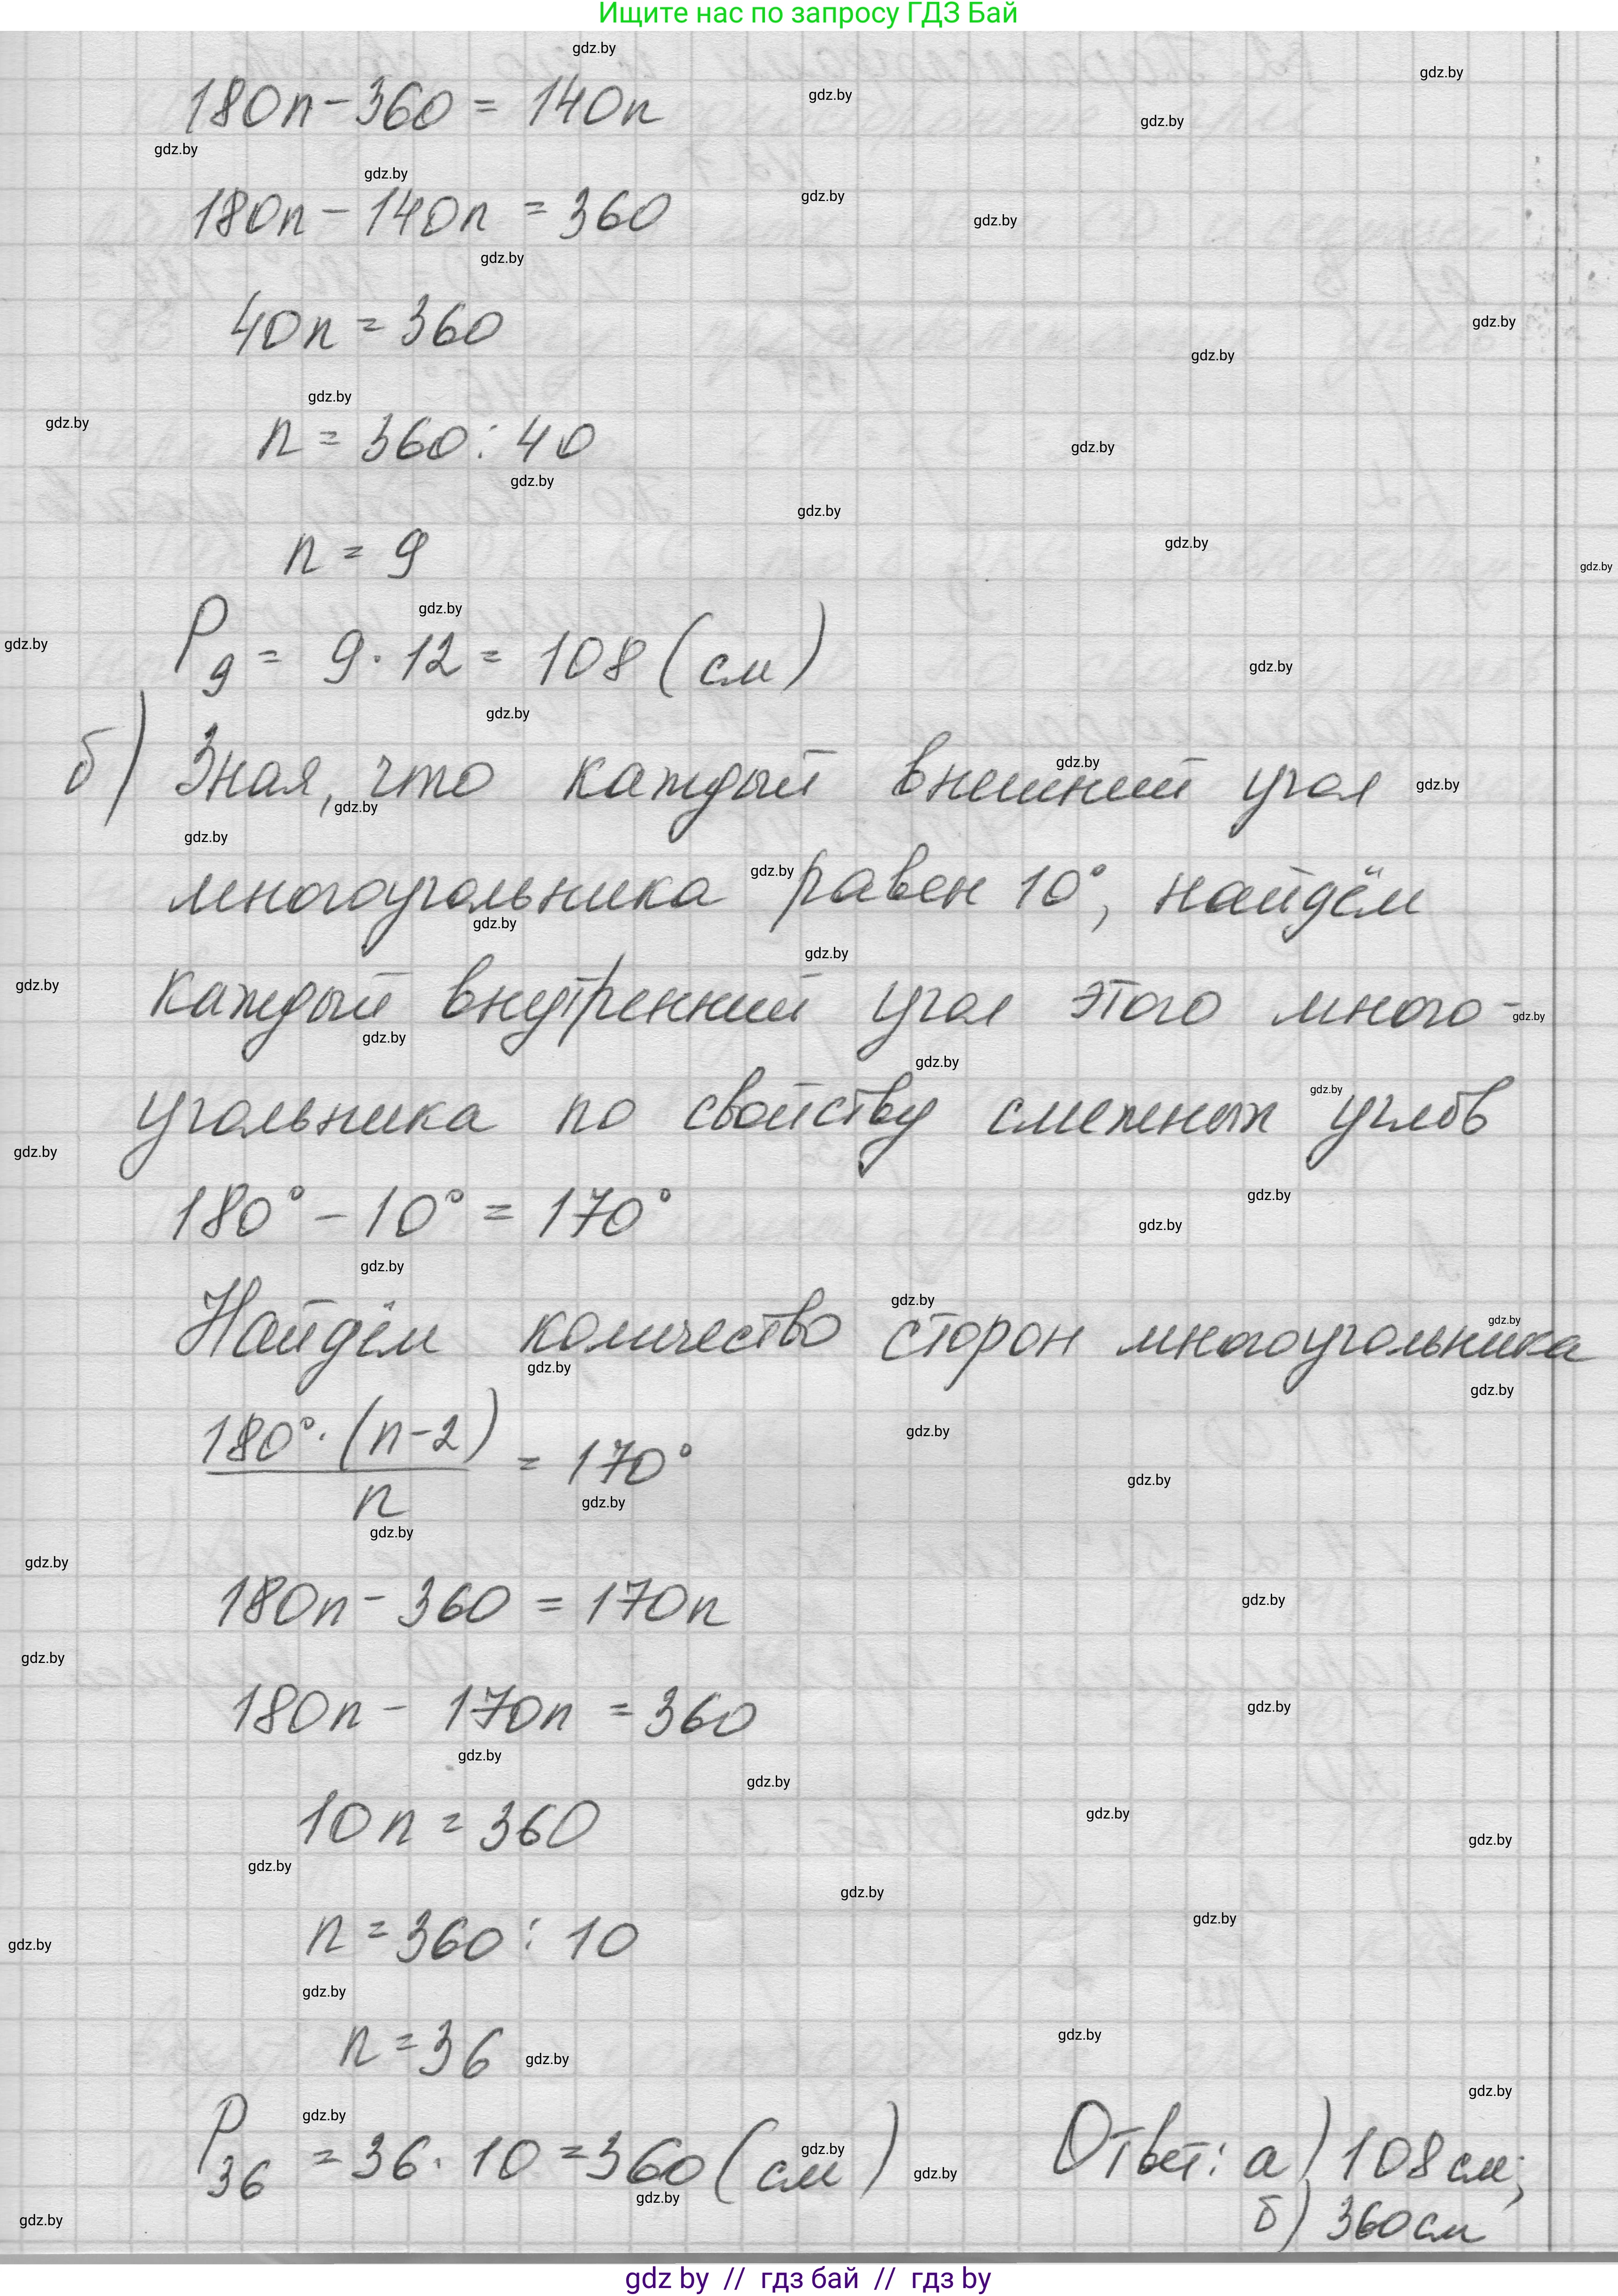 Ищите нас по запросу ГДЗ Бай
180n - 360 = 140n
180n - 140n = 360
40n = 360
n = 360 : 40
n = 9
P₉ = 9 · 12 = 108 (см)
б) Зная, что каждый внешний угол
многоугольника равен 10°, найдём
каждый внутренний угол этого много-
угольника по свойству смежных углов
180° - 10° = 170°
Найдём количество сторон многоугольника
180° · (n - 2) / n = 170°
180n - 360 = 170n
180n - 170n = 360
10n = 360
n = 360 : 10
n = 36
P₃₆ = 36 · 10 = 360 (см) Ответ: а) 108 см;
б) 360 см
gdz by // гдз бай // гдз by